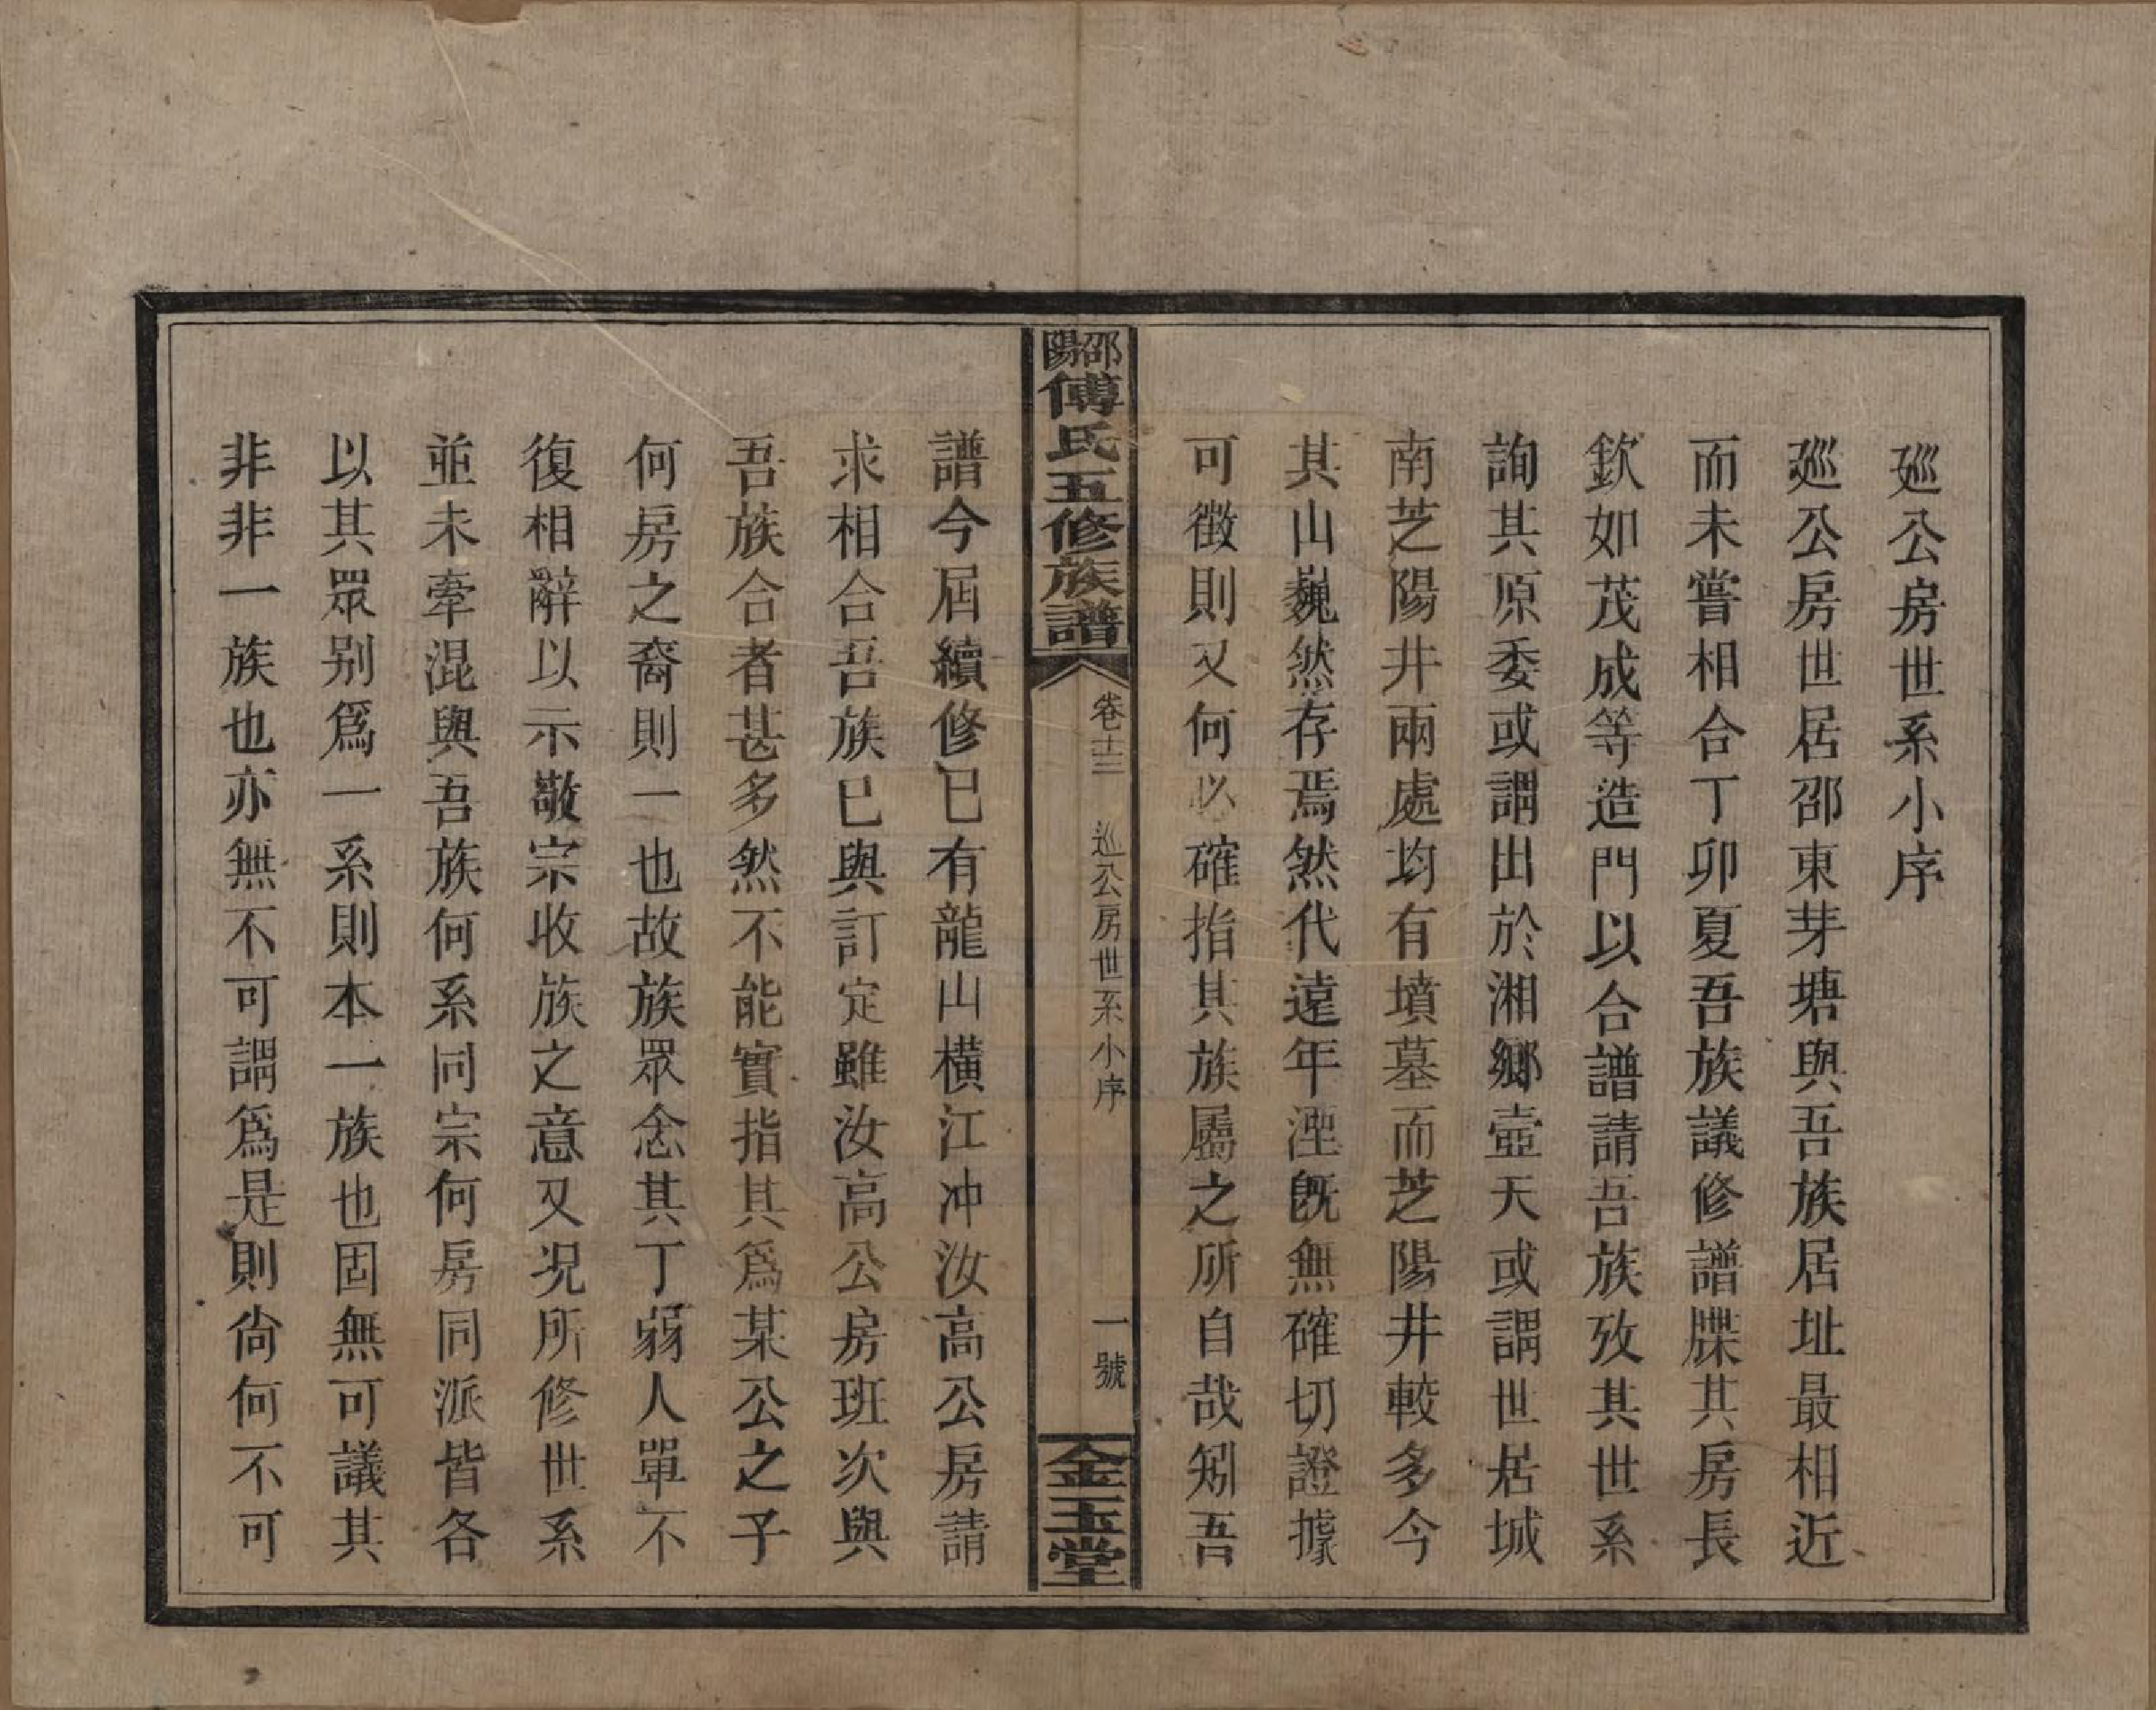 廵公房世系小序
廵公房世居邵東芽塘與吾族居址最相近
而未嘗相合丁卯夏吾族議修譜牒其房長
欽如茂成等造門以合譜請吾族攷其世系
詢其原委或謂出於湘鄉壺天或謂世居城
南芝陽井兩處均有墳墓而芝陽井較多今
其山巍然存焉然代遠年湮旣無確切證據
可徵則又何必確指其族屬之所自哉矧吾
邵陽傅氏五修族譜
卷十三 廵公房世系小序 一號
金玉堂
譜今屆續修已有龍山橫江冲汝高公房請
求相合吾族已與訂定雖汝高公房班次與
吾族合者甚多然不能實指其爲某公之子
何房之裔則一也故族眾念其丁弱人單不
復相辭以示敬宗收族之意又況所修世系
並未牽混與吾族何系同宗何房同派皆各
以其眾别爲一系則本一族也固無可議其
非非一族也亦無不可謂爲是則尙何不可